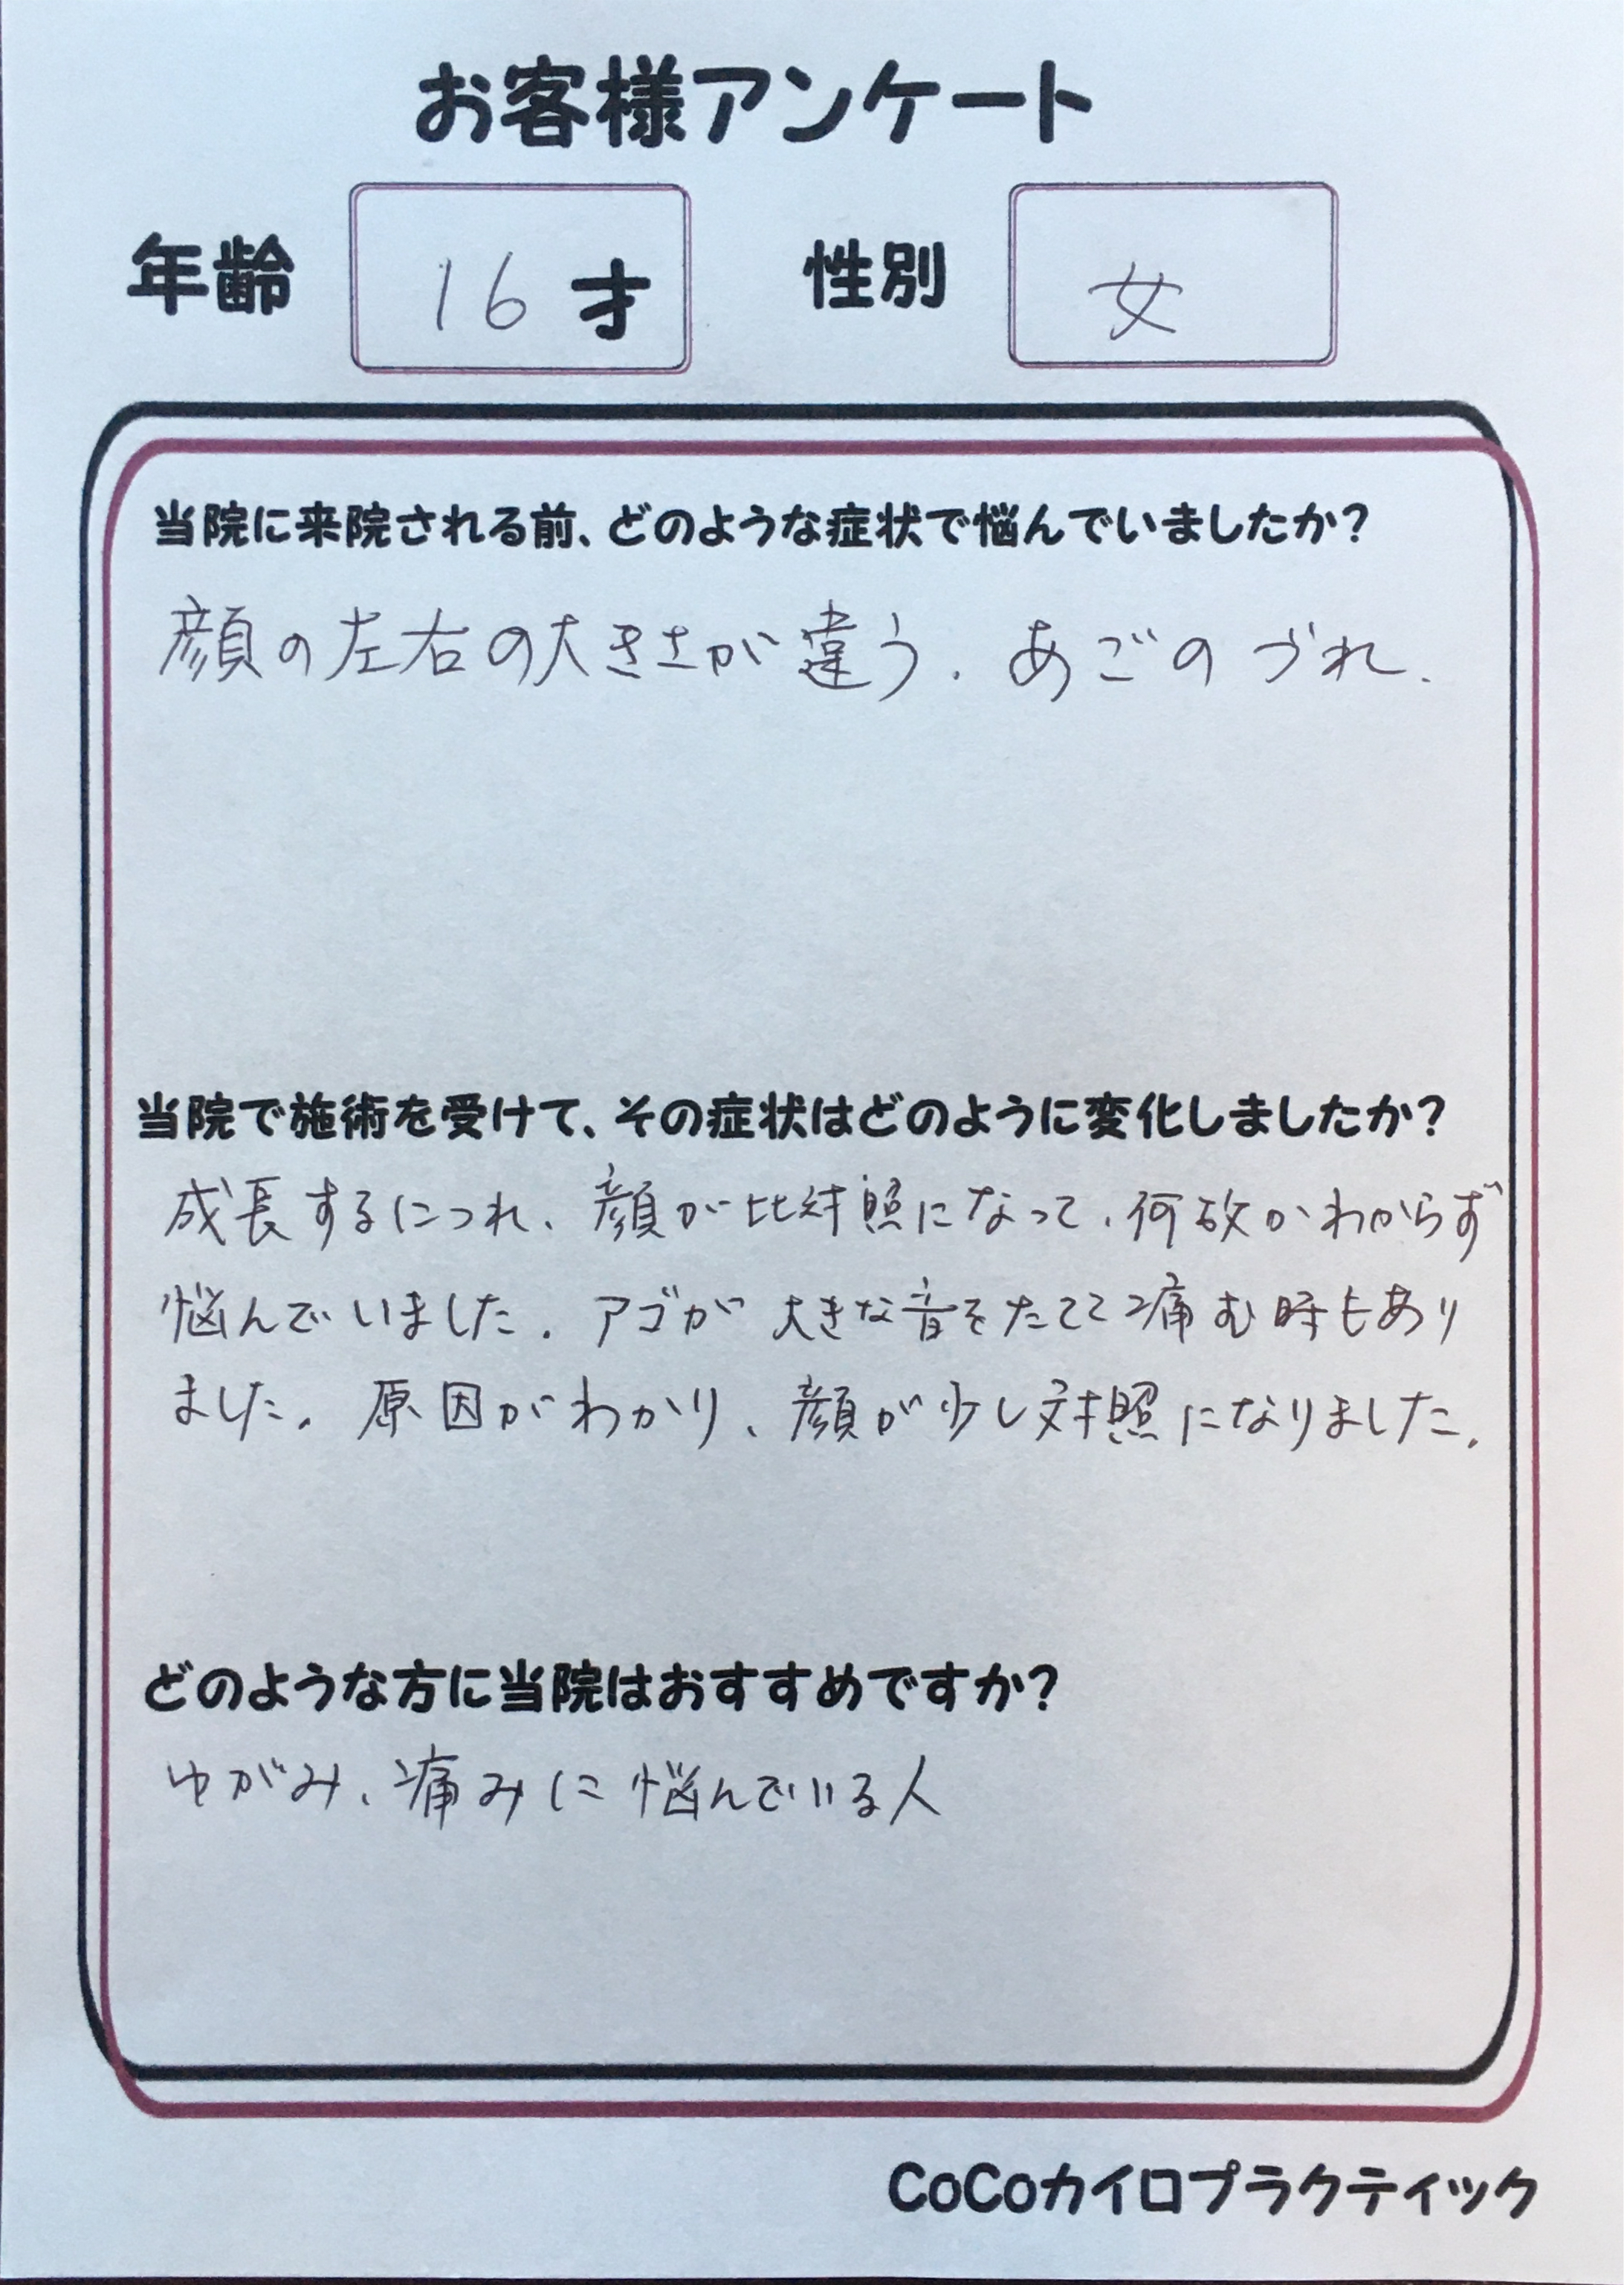 お客様アンケート
年齢 16才 性別 女
当院に来院される前、どのような症状で悩んでいましたか?
顔の左右の大きさが違う. あごのづれ.
当院で施術を受けて、その症状はどのように変化しましたか?
成長するにつれ、顔が比対照になって、何故かわからず
悩んでいました. アゴが大きな音をたてて痛む時もあり
ました. 原因がわかり、顔が少し対照になりました.
どのような方に当院はおすすめですか?
ゆがみ、痛みに悩んでいる人
CoCoカイロプラクティック